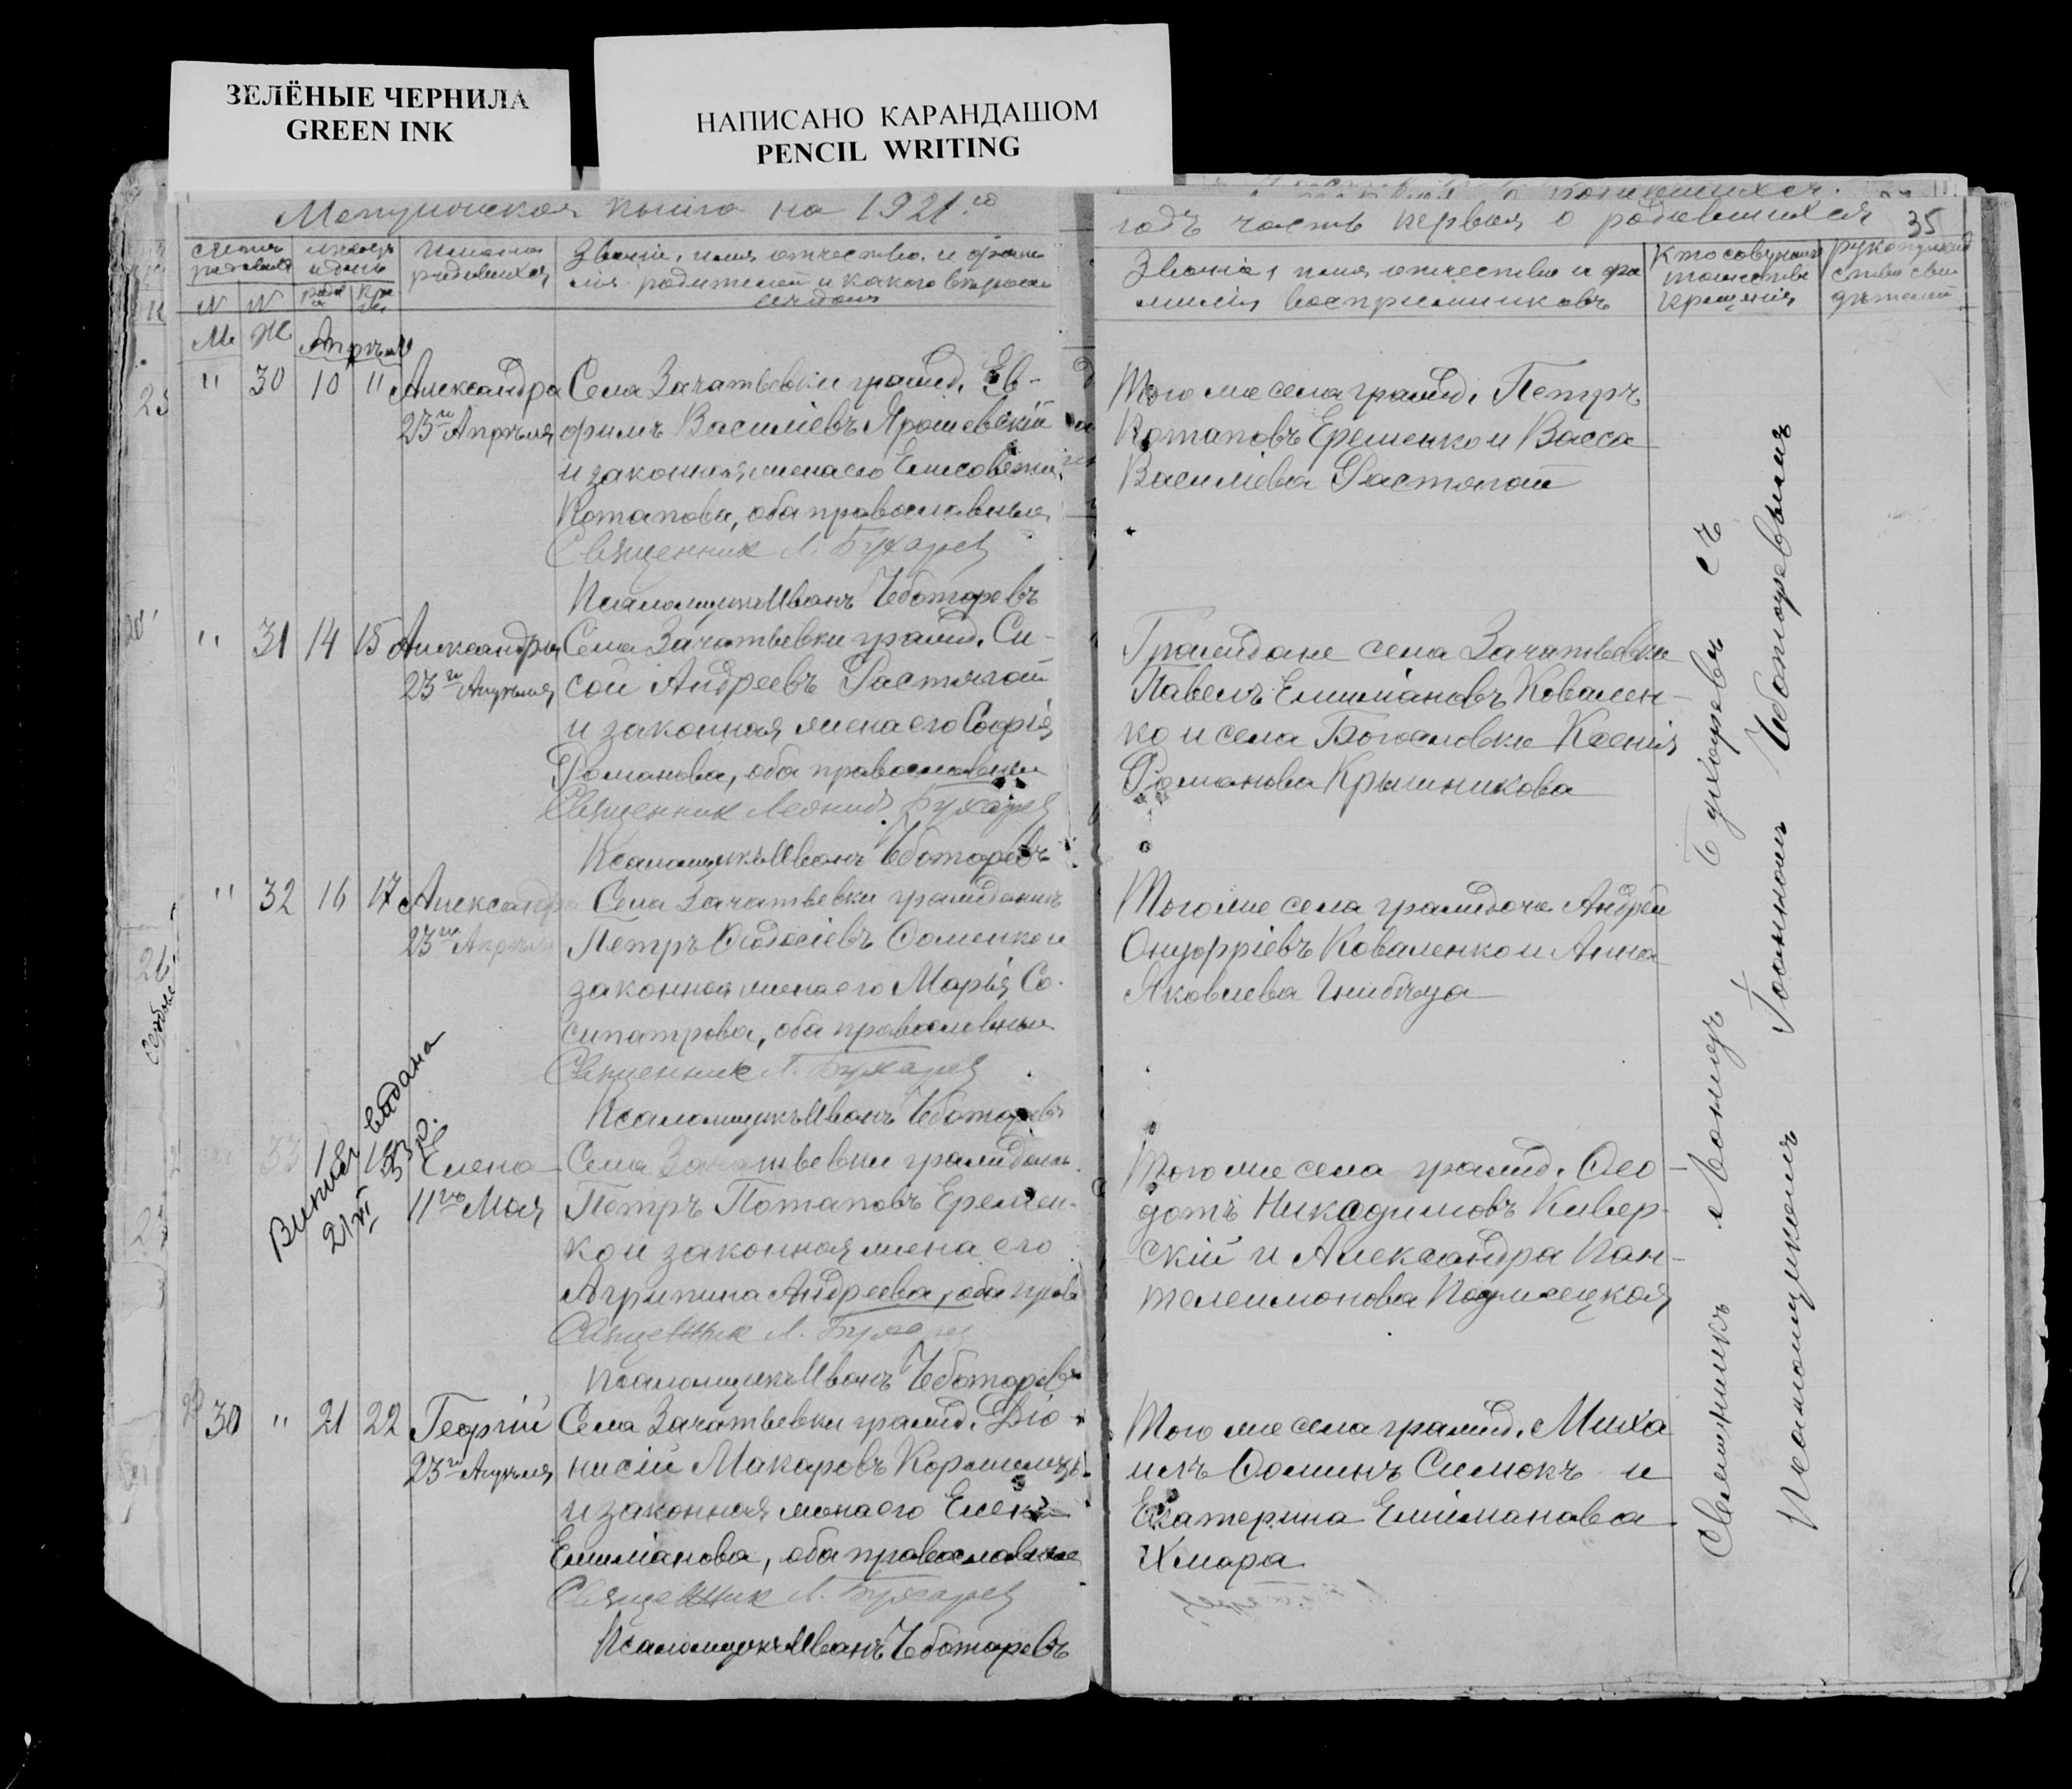 ЗЕЛЁНЫЕ ЧЕРНИЛА
GREEN INK
НАПИСАНО КАРАНДАШОМ
PENCIL WRITING
Метрическая книга на 1921 го
годъ часть первая о родившихся
35
Имена
родившихся
Званіе, имя отчество, и фами-
лія родителей и какого вѣроис
Званіе, имя отчество и фа
милія воспріемниковъ
Кто совершалъ
таинство
крещенія
М Ж Апрѣль
" 30 10 " Александра
23го Апрѣля
Села Зачатьевки гражд. Ев-
фимъ Василіевъ Ярошевскій
и законная жена его Елисавета
Потапова, оба православные
Священник Л. Бухарев
Псаломщикъ Иванъ Чеботаревъ
Того же села гражд. Петръ
Потаповъ Еременко и Васса
Василіева Растягай
" 31 14 15 Александра
23го Апрѣля
Села Зачатьевки гражд. Си-
сой Андреевъ Растягай
и законная жена его Софія
Романова, оба православные
Священник Леонид Бухарев
Псаломщикъ Иванъ Чеботаревъ
Граждане села Зачатьевки
Павелъ Емиліановъ Ковален-
ко и села Богословки Ксенія
Романова Крышникова
" 32 16 17 Александра
23го Апрѣля
Села Зачатьевки гражданинъ
Петръ Ѳеодосіевъ Ѳоменко и
законная жена его Марія Со-
сипатрова, оба православные
Священник Л. Бухарев
Псаломщикъ Иванъ Чеботаревъ
Того же села граждане Андрей
Онуфріевъ Коваленко и Анна
Яковлева Гнибѣда
Випись видана
21/VI 53 р.
33 18 Елена
11го Мая
Села Зачатьевки гражданинъ
Петръ Потаповъ Еремен-
ко и законная жена его
Агрипина Андреева, оба прав
Священник Л. Бухарев
Псаломщикъ Иванъ Чеботаревъ
Того же села гражд. Ѳео-
дотъ Никодимовъ Кивер-
скій и Александра Пан-
телеимонова
30 " 21 22 Георгій
23го Апрѣля
Села Зачатьевки гражд. Діо-
нисій Макаровъ Кормилецъ
и законная жена его Елена
Емиліанова, оба православные
Священник Л. Бухарев
Псаломщикъ Иванъ Чеботаревъ
Того же села гражд. Миха
илъ Ѳоминъ Симокъ и
Екатерина Емиліанова
Хмара
Священникъ Леонидъ Бухаревъ съ
Псаломщикомъ Іоанномъ Чеботаревымъ